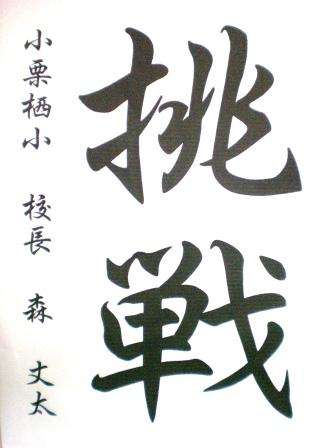 挑戦
小栗栖小 校長 森 丈太